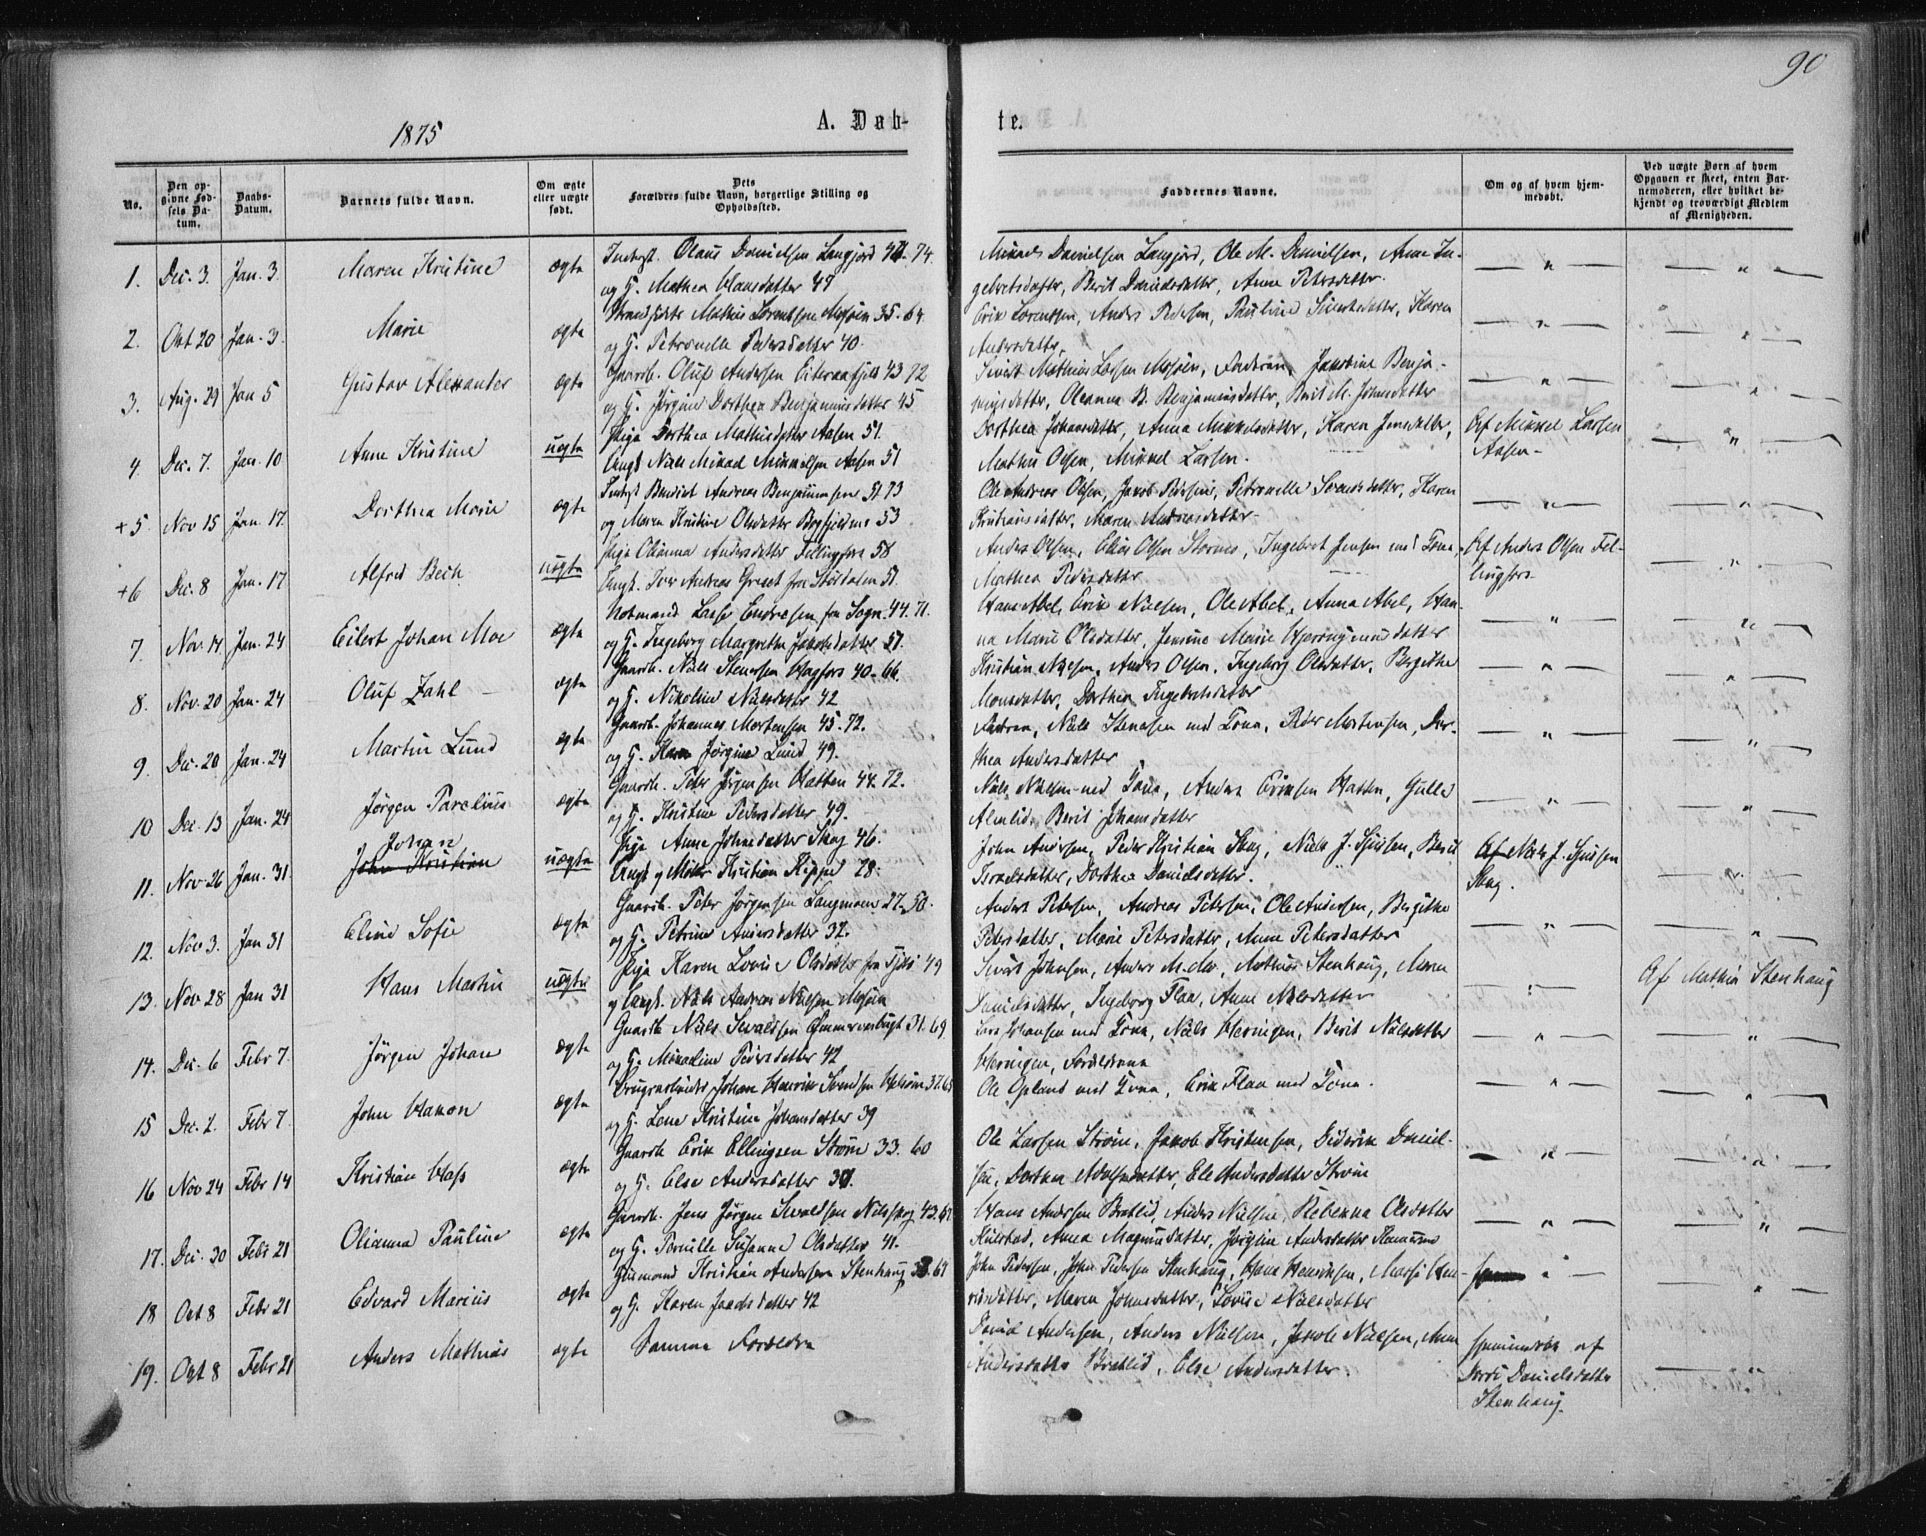 90
1875
A. Døb-
te.
No.
Den op-
givne Fød-
sels Da-
tum.
Daabs-
Datum.
Barnets fulde Navn.
Om ægte
eller uægte
født.
Dets
Forældres fulde Navn, borgerlige Stilling og
Opholdssted.
Faddernes Navne.
Om og af hvem hjem-
medøbt.
Ved uægte Børn af hvem
Opgaven er skeet, enten Bar-
nemoderen, eller hvilket be-
kjendt og troværdigt Medlem
af Menigheden.
1. Dec. 3. Jan. 3. Maren Kristine ægte Inderst. Olaus Danielsen Langjord 74
og H. Mathea Hansdatter 49
Mikael Danielsen Langjord, Ole M. Danielsen, Anne In-
gebretsdatter, Berit Danielsdatter, Anne Petersdatter.
2. Okt 20 Jan. 3. Marie ægte Strandsidder Mathis Lorentsen Mosjøen 35. 64
og H. Petronelle Pedersdatter 40.
Erik Lorentsen, Anders Pedersen, Pauline Sivertsdatter, Karen
Andersdatter
3. Aug. 29 Jan 5 Gustav Alexander ægte Gaardb. Oluf Andersen Eiteraafjeld 43 72
og H. Jørgine Dorthea Benjaminsdatter 45
Sivert Mathias Larsen Mosjøen, Faderen, Jakobine Benja-
minsdatter, Oleanna B. Benjaminsdatter, Berit M. Johnsdatter
4 Dec. 7. Jan. 10 Anne Kristine uægte Pige Dorthea Mathisdatter Aasen 51.
Ungk. Niels Mikal Mikkelsen Aasen 51
Dorthea Johansdatter, Anna Mikkelsdatter, Karen Jensdatter,
Mathis Olsen, Mikkel Larsen.
Af Mikkel Larsen
Aasen
+5. Nov 15 Jan. 17. Dorthea Marie ægte Inderst Benedict Andreas Benjaminsen 51 73
og Maren Kristine Olsdatter 53
Ole Andreas Olsen, Jakob Pedersen, Petronelle Svendsdatter, Karen
Kristiansdatter, Maren Andreasdatter
+6 Dec. 8 Jan. 17. Alfred Bech uægte Pige Olianna Andersdatter Fellingfors 58
Ungk. Iver Andreas fra Stordalen 51.
Anders Olsen, Elias Olsen, Ingebret Jensen med Kona,
Mathea Pedersdatter
Af Anders Olsen Fel-
lingfors
7. Nov. 14. Jan. 24 Eilert Johan Moe ægte Nordmand Lasse Endresen fra Sogn. 44. 71.
og H. Ingeborg Margrethe Jakobsdatter 51.
Hans Abel, Erik Nielsen, Ole Abel, Anna Abel, Han-
na Marie Olsdatter, Jensine Marie
8. Nov. 20 Jan. 24 Oluf Zahl ægte Gaardb. Niels Stensen Hagfors 40-66.
og H. Nikoline Nielsdatter 42
Kristian Nilsen, Anders Olsen, Ingeborg Olsdatter, Bergithe
Monsdatter, Dorthea Ingebretsdatter
9 Dec. 20 Jan. 24 Martin Lund ægte Gaardb. Johannes Mortensen 45. 72.
og H. Karen Jørgine Lund 49.
Faderen, Niels Stenersen med Kona, Peder Mortensen, Dor-
thea Andersdatter
10 Dec. 13 Jan. 24 Jørgen Parelius ægte Gaardb. Peter Jørgensen Hatten 44. 72.
og H. Kristine Pedersdatter 49.
Niels Nielsen med Kona, Anders Eriksen Hatten, Gulla
Almlid, Berit Johansdatter
11. Nov 26 Jan. 31. Johan
John Kristian uægte Pige Anne Johnsdatter Skog 46.
Ungk og Møller Kristian Kippe 28.
John Andersen, Peder Kristian Skog, Niels J. Skog, Berit
Israelsdatter, Dorthea Danielsdatter.
Af Niels J.
Skog.
12. Nov 3. Jan 31 Eline Sofie ægte Gaardb. Peter Jørgensen Langmoen 27. 50.
og H. Petrine Andersdatter 32.
Anders Petersen, Andreas Petersen, Ole Andersen, Bergithe
Petersdatter, Marie Petersdatter, Anne Petersdatter
13. Nov 28 Jan 31 Hans Martin uægte Pige Karen Lovise Olsdatter fra 49
og Ungk. Niels Andreas Nielsen Mosjøen
Sivert Johnsen, Anders, Mathias Stenhaug, Maren
Danielsdatter, Ingeborg Flaa, Anne Nilsdatter
Af Mathias Stenhaug
14. Dec. 6 Febr 7. Jørgen Johan ægte Gaardb Niels Sevaldsen Ømmervasbugt 31. 69
og H. Mikaeline Pedersdatter 42
Lars Johansen med Kona, Niels Herringen, Berit Nielsdatter
Herringen, Forældrene
15 Dec. 2. Febr 7. John Hakon ægte Brugsarbeider Johan Henrik Svendsen 37
og H. Lene Kristine Johansdatter 39
Ole Opland med Kona, Erik Flaa med Kona.
16 Nov 24 Febr 14 Kristian Hass ægte Gaardb Erik Ellingsen Strøm 33. 60
og H. Else Andersdatter
Ole Larsen Strøm, Jakob Kristensen, Diderik Daniel-
sen, Dorthea Adolfsdatter, Ele Andersdatter Strøm
17. Dec. 30 Febr 21 Olianna Pauline ægte Gaardb. Jens Jørgen Sevaldsen Nilsskog 43.
og H. Pernille Susanne Olsdatter 41.
Hans Andersen Bratlid, Anders Nielsen, Rebekka Olsdatter
Kulstad, Anna Magnusdatter, Jørgine Andersdatter
18 Oct 8 Febr 21 Edvard Marius ægte Kristian Andersen Stenhaug
og H. Karen Jacobsdatter 42
John Pedersen, John Pedersen Stenhaug, Hans Henriksen, Marsi Hen-
riksdatter, Maren Johnsdatter, Lovise Nielsdatter
19. Oct 8 Febr 21 Anders Mathias ægte Samme Forældre
Daniel Andersen, Anders Nielsen, Jakob Nielsen, Anne
Andersdatter Bratlid, Else Andersdatter.
hjemmedøbt af
Danielsdatter
Stenhaug.